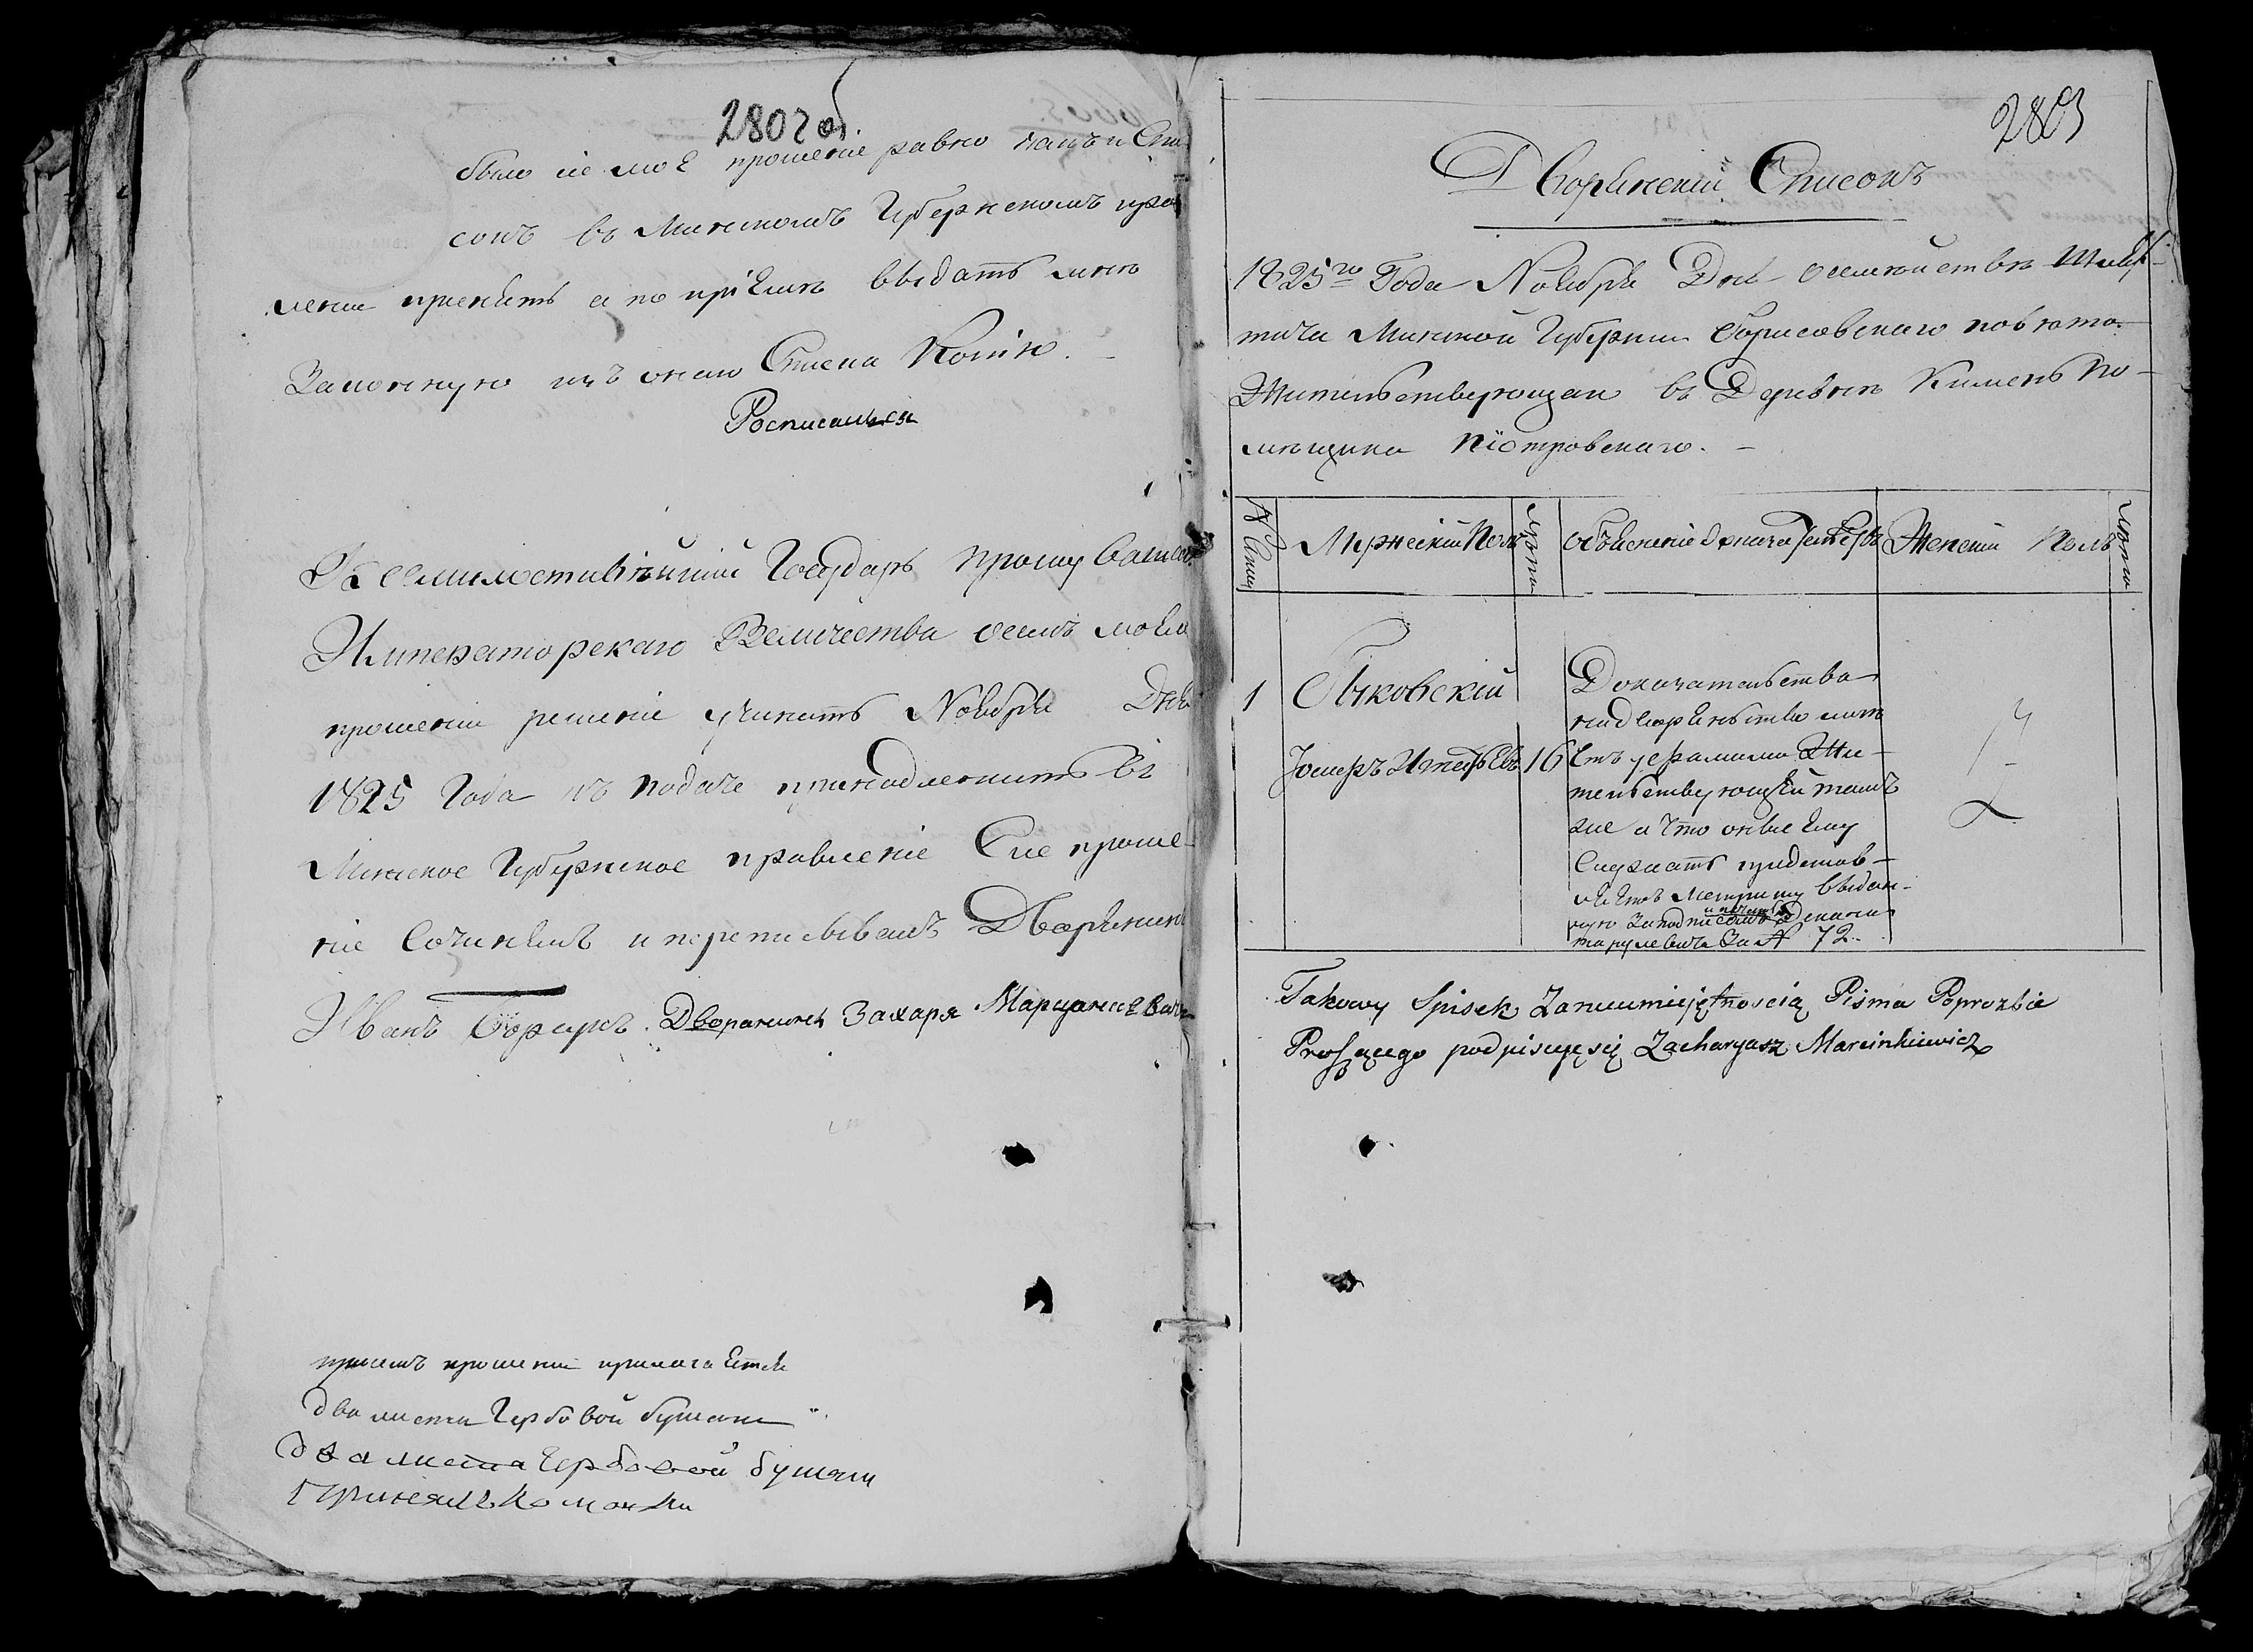 2802 об
было сіе мое прошеніе равно какъ и Спи
сокъ въ Минскомъ Губернскомъ прав
леніи принять и по пріемѣ выдать мнѣ
Законную изъ онаго Списка Копію. –
Росписался
Всемилостивѣйшій Государь прошу Вашего
Императорскаго Величества о семъ моемъ
прошеніи решеніе учинить Ноября Дня
1825 Года къ подаче принадлежитъ въ
Минское Губернское правленіе Сие проше–
ніе Сочинялъ и переписывалъ Дворянинъ
Иванъ Дворанинъ Захаря Марцинкевичъ
при семъ прошеніи прилагается
два листа Гербовой бумаги
два листа Гербовой бумаги
Принялъ
2803
Дворянскій Списокъ
1825го Года Ноября Дня о семействѣ Шлях–
тича Минской Губерніи Борисовскаго повѣта
Жительствующаго въ Деревнѣ По–
мѣщика Піотровскаго. –
Мужескій Полъ
Лѣта
Объясненіе доказательствъ
Женскій Полъ
Лѣта
1
Быковскій
Іосифъ Игнатьевъ 16
Доказательства
на дворянство имѣ
етъ у фамиліи Жи–
тельствующей тамъ
же и что оные ему
Служатъ представ–
ляетъ Метрику выдан–
ную За подписомъ
и печатью
За N 72.
Takowy Spisek Zanieumiejętnoscią Pisma Poprozbie
Proszącego podpisuję się Zacharyasz Marcinkiewicz